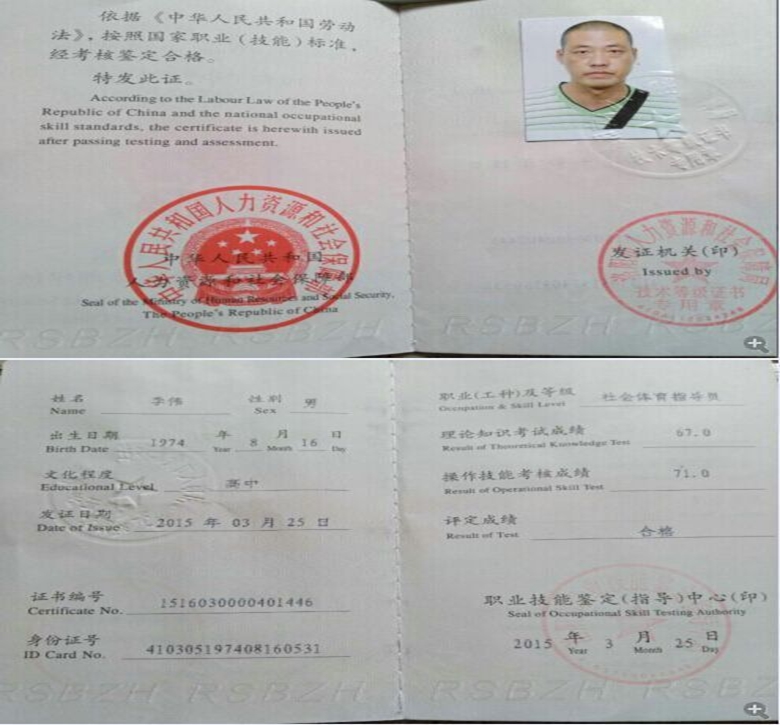 依据《中华人民共和国劳动
法》，按照国家职业（技能）标准，
经考核鉴定合格。
特发此证。
According to the Labour Law of the People's
Republic of China and the national occupational
skill standards, the certificate is herewith issued
after passing testing and assessment.
中华人民共和国
人力资源和社会保障部
Seal of the Ministry of Human Resources and Social Security,
The People's Republic of China
发证机关(印)
Issued by
技术等级证书
专用章
RSBZH RSBZH
RSBZH RSBZH
姓名 李伟 性别 男
Name Sex
出生日期 1974 年 8 月 16 日
Birth Date Year Month Day
文化程度 高中
Educational Level
发证日期 2015 年 03 月 25 日
Date of Issue
证书编号 1516030000401446
Certificate No.
身份证号 410305197408160531
ID Card No.
职业(工种)及等级 社会体育指导员
Occupation & Skill Level
理论知识考试成绩 67.0
Result of Theoretical Knowledge Test
操作技能考核成绩 71.0
Result of Operational Skill Test
评定成绩 合格
Result of Test
职业技能鉴定(指导)中心(印)
Seal of Occupational Skill Testing Authority
2015 年 3 月 25 日
Year Month Day
RSBZH RSBZH
RSBZH RSBZH